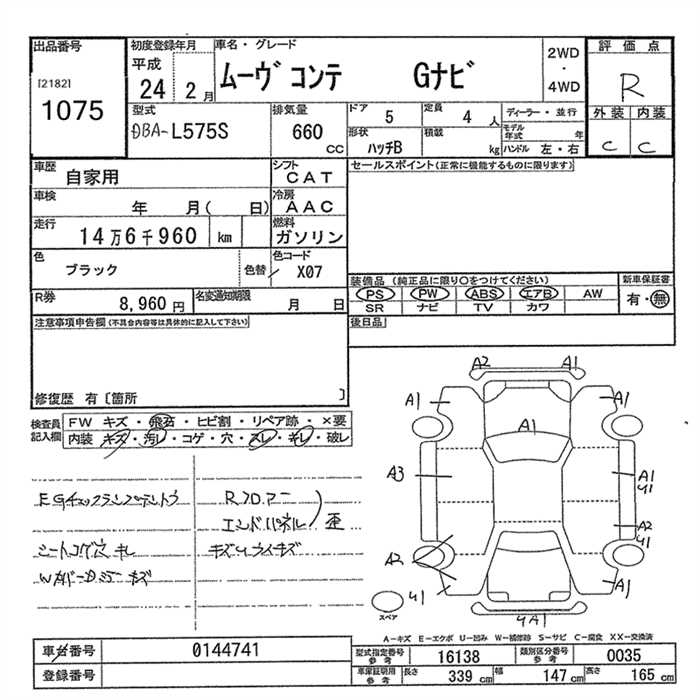 出品番号
[2182]
1075
初度登録年月
平成
24 2 月
車名・グレード
ムーヴ コンテ Gナビ
2WD
・
4WD
評価点
R
外装 内装
C C
型式
DBA- L575S
排気量
660 CC
ドア 5
定員 4 人
形状 ハッチB
積載 kg
ディーラー・並行
モデル年式 年
ハンドル 左・右
車歴
自家用
シフト
CAT
車検
年 月( 日)
冷房
AAC
走行
14万6千960 km
燃料
ガソリン
色
ブラック
色替
色コード
X07
R券
8,960 円
名変通知期限
月 日
セールスポイント(正常に機能するものに限ります)
装備品 (純正品に限り○をつけてください)
PS PW ABS エアB AW
SR ナビ TV カワ
新車保証書
有・無
後日品
注意事項申告欄(不具合内容等は具体的に記入して下さい)
修復歴 有〔箇所 〕
検査員記入欄
FW キズ・飛石・ヒビ割・リペア跡・×要
内装 キズ・汚レ・コゲ・穴・スレ・キレ・破レ
EGチェックランプテントウ
シートコゲ穴 キレ
Rフロアー
エンドパネル 歪
A2 A1
A1 A1
A1
A3 A1
U1
A2
U1
A2
A1
U1
UA1
スペア
A-キズ E-エクボ U-凹み W-補修跡 S-サビ C-腐食 XX-交換済
車台番号 0144741
登録番号
型式指定番号
参考
16138
類別区分番号
参考
0035
車庫証明用
参考
長さ 339 cm
幅 147 cm
高さ 165 cm